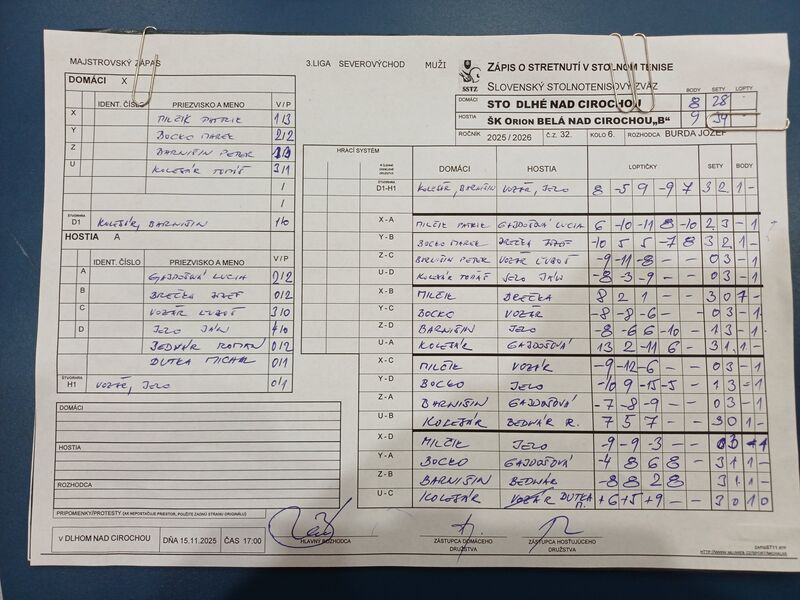 MAJSTROVSKÝ ZÁPAS
3.LIGA SEVEROVÝCHOD MUŽI
ZÁPIS O STRETNUTÍ V STOLNOM TENISE
SSTZ SLOVENSKÝ STOLNOTENISOVÝ ZVÄZ
BODY SETY LOPTY
DOMÁCI STO DLHÉ NAD CIROCHOU 8 28
HOSTIA ŠK ORION BELÁ NAD CIROCHOU„B" 9 34
ROČNÍK 2025 / 2026 Č.Z. 32. KOLO 6. ROZHODCA BURDA JOZEF
DOMÁCI X
IDENT. ČÍSLO PRIEZVISKO A MENO V / P
X MILČIK PATRIK 1/3
Y BOCKO MAREK 2/2
Z BARNIŠIN PETER
U KOLESÁR TOMÁŠ 3/1
/
/
ŠTVORHRA D1 KOLESÁR, BARNIŠIN 1/0
HOSTIA A
IDENT. ČÍSLO PRIEZVISKO A MENO V / P
A GAJDOŠOVÁ LUCIA 2/2
B BREČKA JOZEF 0/2
C VOZÁR ĽUBOŠ 3/0
D JELO JÁN 4/0
BEDNÁR ROMAN 0/2
DUTKA MICHAL 0/1
ŠTVORHRA H1 VOZÁR, JELO 0/1
HRACÍ SYSTÉM DOMÁCI HOSTIA LOPTIČKY SETY BODY
D1-H1 KOLESÁR, BARNIŠIN VOZÁR, JELO 8 -5 9 -9 7 3 2 1 -
X - A MILČIK PATRIK GAJDOŠOVÁ LUCIA 6 -10 -11 8 -10 2 3 - 1
Y - B BOCKO MAREK BREČKA JOZEF -10 5 5 -7 8 3 2 1 -
Z - C BARNIŠIN PETER VOZÁR ĽUBOŠ -9 -11 -8 - - 0 3 - 1
U - D KOLESÁR TOMÁŠ JELO JÁN -8 -3 -9 - - 0 3 - 1
X - B MILČIK BREČKA 8 2 1 - - 3 0 1 -
Y - C BOCKO VOZÁR -8 -8 -6 - - 0 3 - 1
Z - D BARNIŠIN JELO -8 -6 6 -10 - 1 3 - 1
U - A KOLESÁR GAJDOŠOVÁ 13 2 -11 6 - 3 1 1 -
X - C MILČIK VOZÁR -9 -12 -6 - - 0 3 - 1
Y - D BOCKO JELO -10 9 -15 -5 - 1 3 - 1
Z - A BARNIŠIN GAJDOŠOVÁ -7 -8 -9 - - 0 3 - 1
U - B KOLESÁR BEDNÁR R. 7 5 7 - - 3 0 1 -
X - D MILČIK JELO -9 -9 -3 - - 0 3 - 1
Y - A BOCKO GAJDOŠOVÁ -4 8 6 8 - 3 1 1 -
Z - B BARNIŠIN BEDNÁR -8 8 2 8 - 3 1 1 -
U - C KOLESÁR VOZÁR DUTKA M. +6 +5 +9 - - 3 0 1 0
DOMÁCI
HOSTIA
ROZHODCA
PRIPOMIENKY/PROTESTY (AK NEPOSTAČUJE PRIESTOR, POUŽITE ZADNÚ STRANU ORIGINÁLU)
V DLHOM NAD CIROCHOU DŇA 15.11.2025 ČAS 17:00
HLAVNÝ ROZHODCA
ZÁSTUPCA DOMÁCEHO DRUŽSTVA
ZÁSTUPCA HOSŤUJÚCEHO DRUŽSTVA